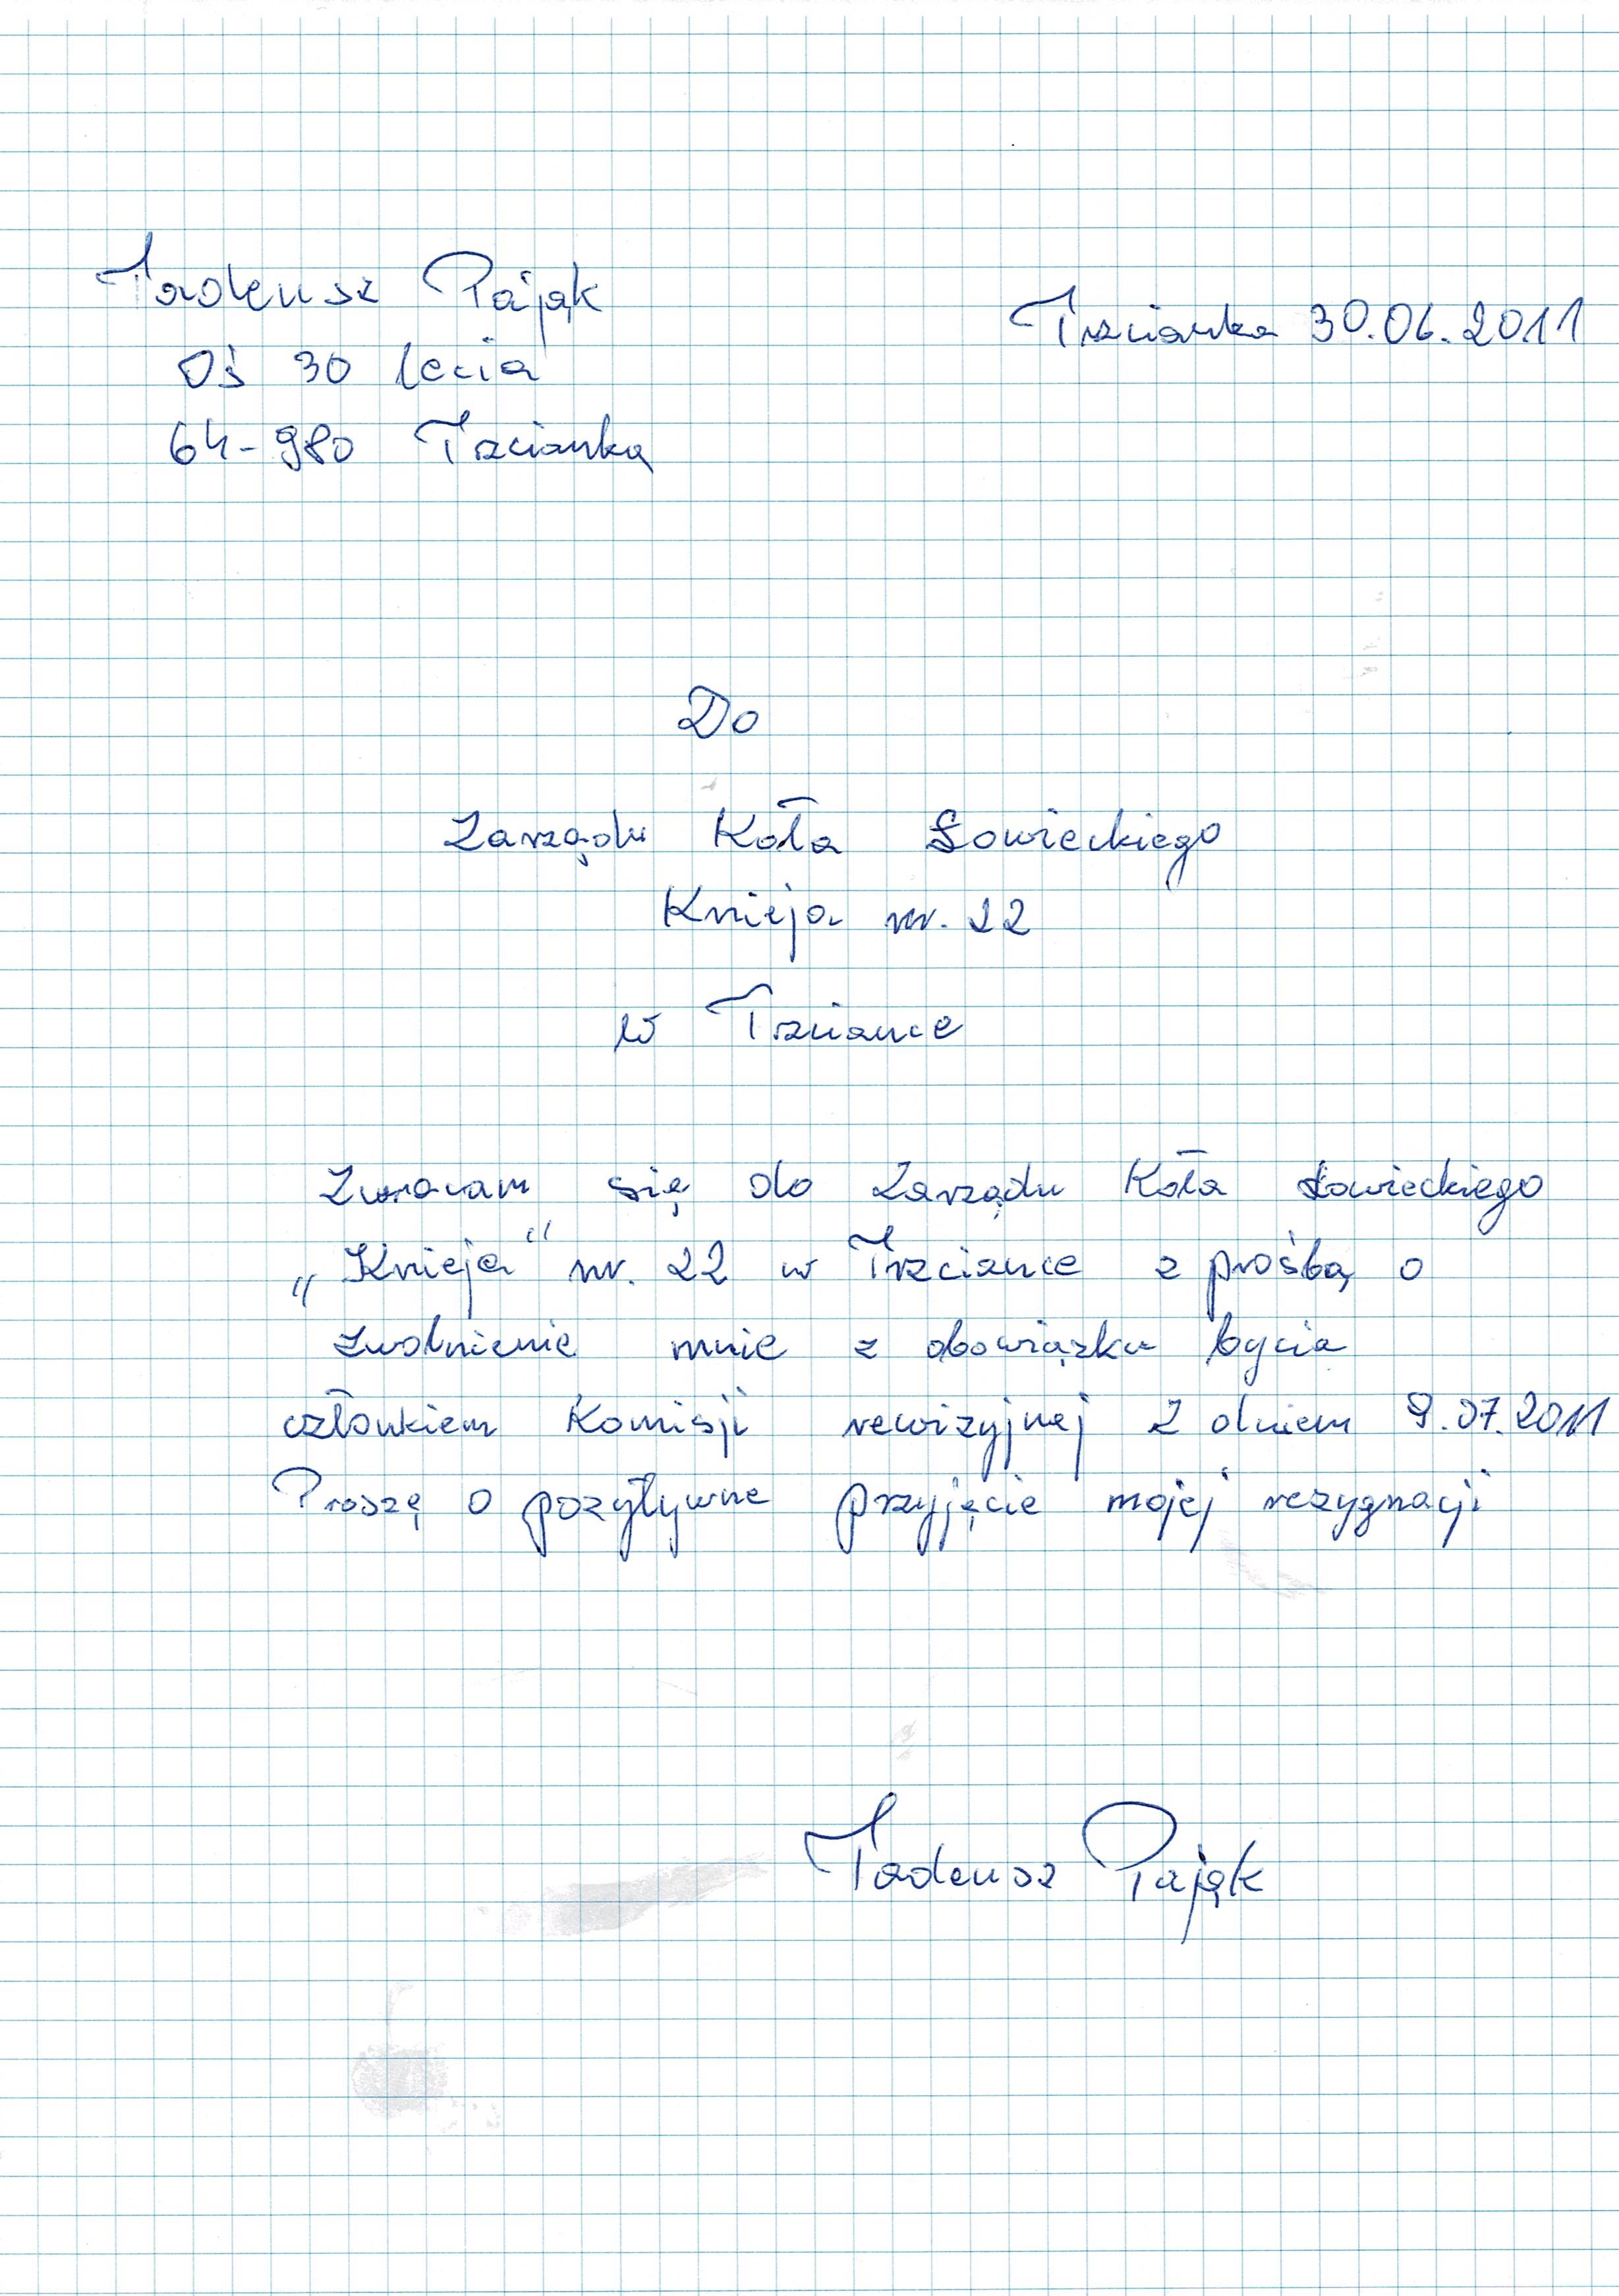 Tadeusz Pająk
Trzcianka 30.06.2011
Oś 30 lecia
64-980 Trzcianka
Do
Zarządu Koła Łowieckiego
Knieja nr. 22
w Trzciance
Zwracam się do Zarządu Koła Łowieckiego
„Knieja" nr. 22 w Trzciance z prośbą o
zwolnienie mnie z obowiązku bycia
członkiem Komisji rewizyjnej z dniem 9.07.2011
Proszę o pozytywne przyjęcie mojej rezygnacji
Tadeusz Pająk